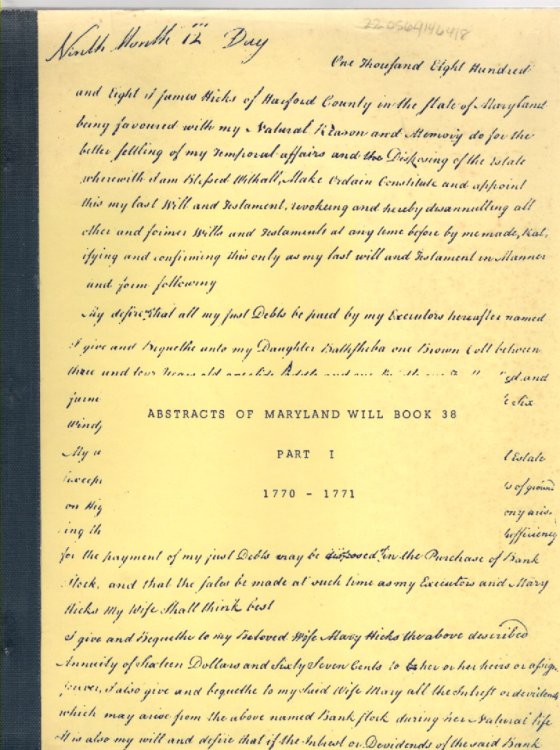 22056414 6418
Ninth Month 12 Day
One Thousand Eight Hundred
and Eight I James Hicks of Harford County in the State of Maryland
being favoured with my Natural Reason and Memory do for the
better settling of my Temporal affairs and the Disposing of the Estate
wherewith I am Blessed Withall, Make Ordain Constitute and appoint
this my last Will and Testament, revokeing and hereby disannulling all
other and former Wills and Testaments at any time before by me made, Rat,
ifying and confirming this only as my last will and Testament in Manner
and form following
My desire that all my just Debts be paid by my Executors hereafter named
I give and Bequethe unto my Daughter Bathsheba one Brown Colt between
three and four Years old
and
furne
Six
Windf
ABSTRACTS OF MARYLAND WILL BOOK 38
My
PART I
Estate
Except
of ground
1770 - 1771
on Hig
ony aris-
ing th
sufficiency
for the payment of my just Debts may be disposed in the Purchase of Bank
Stock, and that the sales be made at such time as my Executors and Mary
Hicks My Wife Shall think best
I give and Bequethe to my Beloved Wife Mary Hicks the above described
Annuity of Sixteen Dollars and Sixty Seven Cents to her or her heirs or assigns
forever, I also give and bequethe to my said Wife Mary all the Intrest or devidends
which may arise from the above named Bank Stock during her Natural life
It is also my will and desire that if the Intrest or Dividends of the said Bank